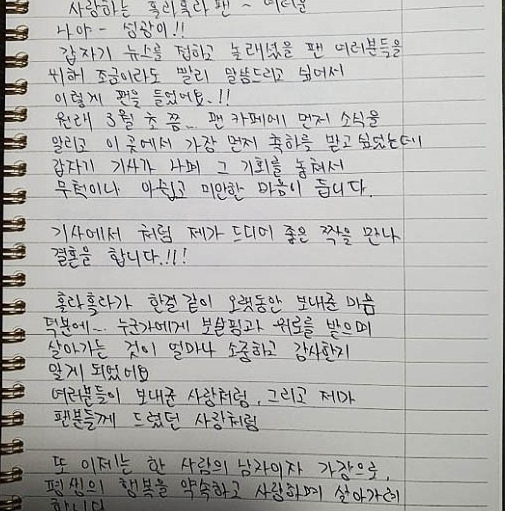 사랑하는 훌라훌라 팬~ 여러분
나야 - 성광이.!!
갑자기 뉴스를 접하고 놀래셨을 팬 여러분들을
위해 조금이라도 빨리 말씀드리고 싶어서
이렇게 펜을 들었어요.!!
원래 3월 초 쯤... 팬 카페에 먼저 소식을
알리고 이 곳에서 가장 먼저 축하를 받고 싶었는데
갑자기 기사가 나와 그 기회를 놓쳐서
무척이나 아쉽고 미안한 마음이 듭니다.
기사에서 처럼 제가 드디어 좋은 짝을 만나
결혼을 합니다.!!!
훌라훌라가 한결 같이 오랫동안 보내준 마음
덕분에~. 누군가에게 보살핌과 위로를 받으며
살아가는 것이 얼마나 소중하고 감사한지
알게 되었어요
여러분들이 보내준 사랑처럼, 그리고 제가
팬분들께 드렸던 사랑처럼
또 이제는 한 사람의 남자이자 가장으로,
평생의 행복을 약속하고 사랑하며 살아가려
합니다